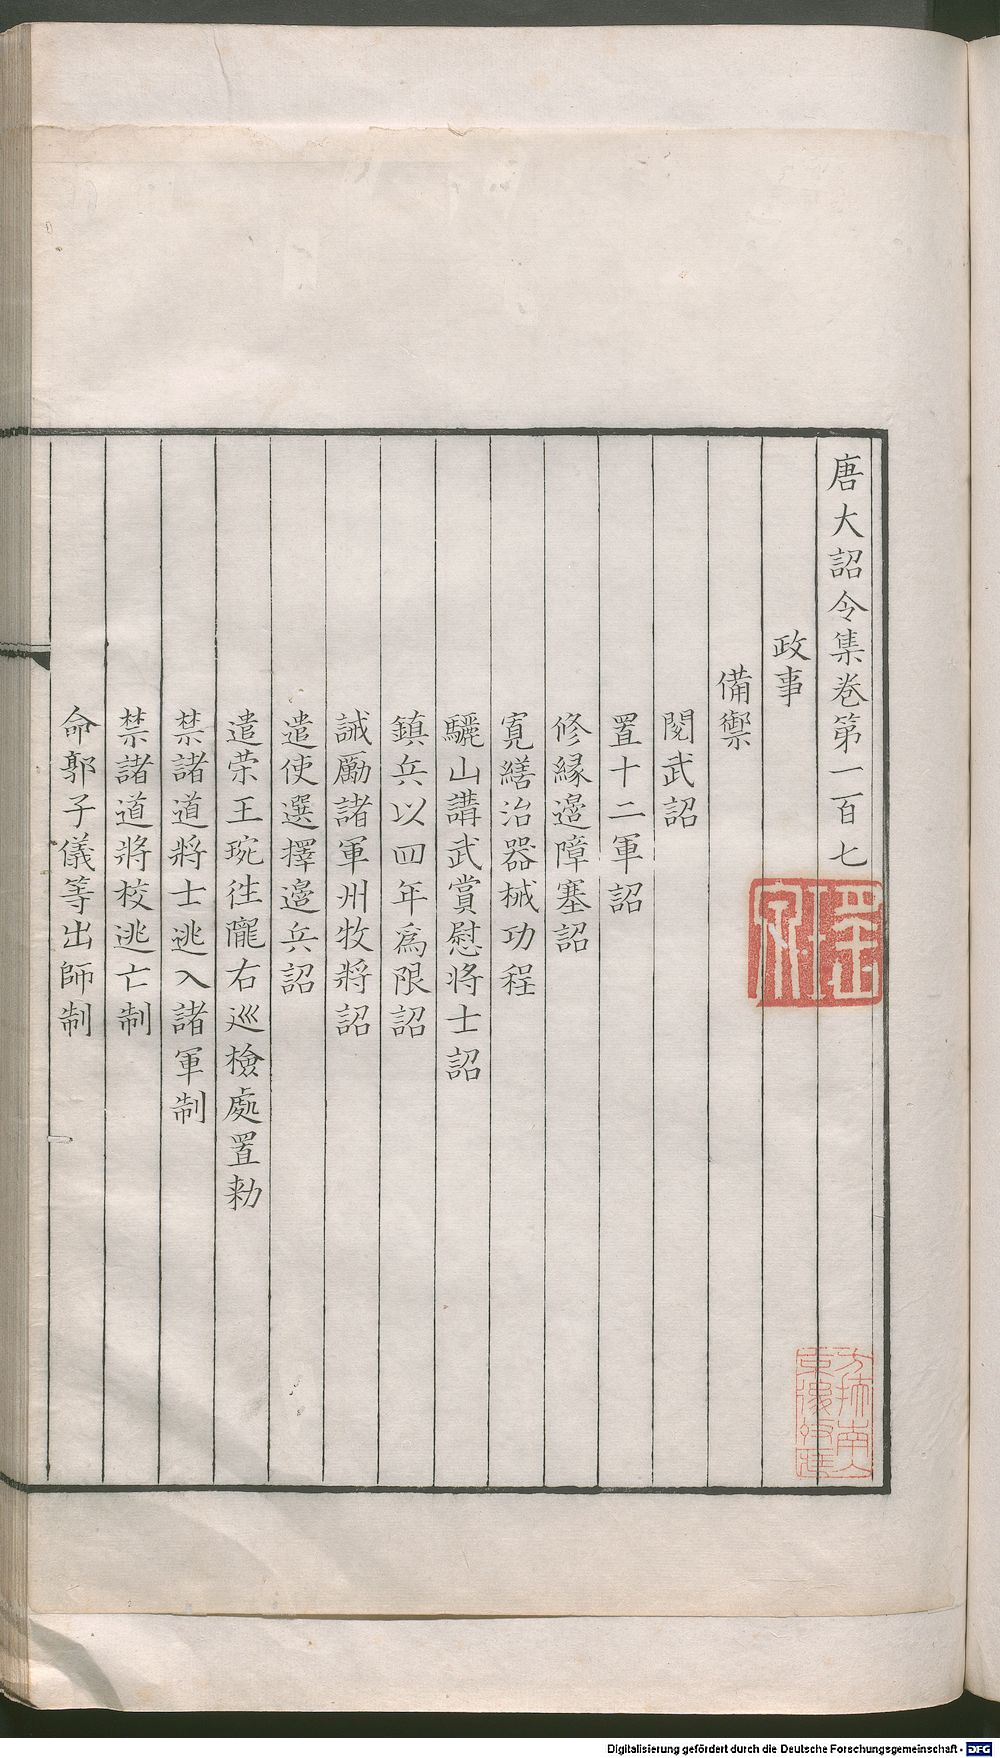 唐大詔令集卷第一百七
政事
備禦
閱武詔
置十二軍詔
修緣邊障塞詔
寬繕治器械功程
驪山講武賞慰將士詔
鎮兵以四年爲限詔
誡勵諸軍州牧將詔
遣使選擇邊兵詔
遣荣王琬徃隴右巡檢處置勑
禁諸道將士逃入諸軍制
禁諸道將校逃亡制
命郭子儀等出師制
Digitalisierung gefördert durch die Deutsche Forschungsgemeinschaft - DFG